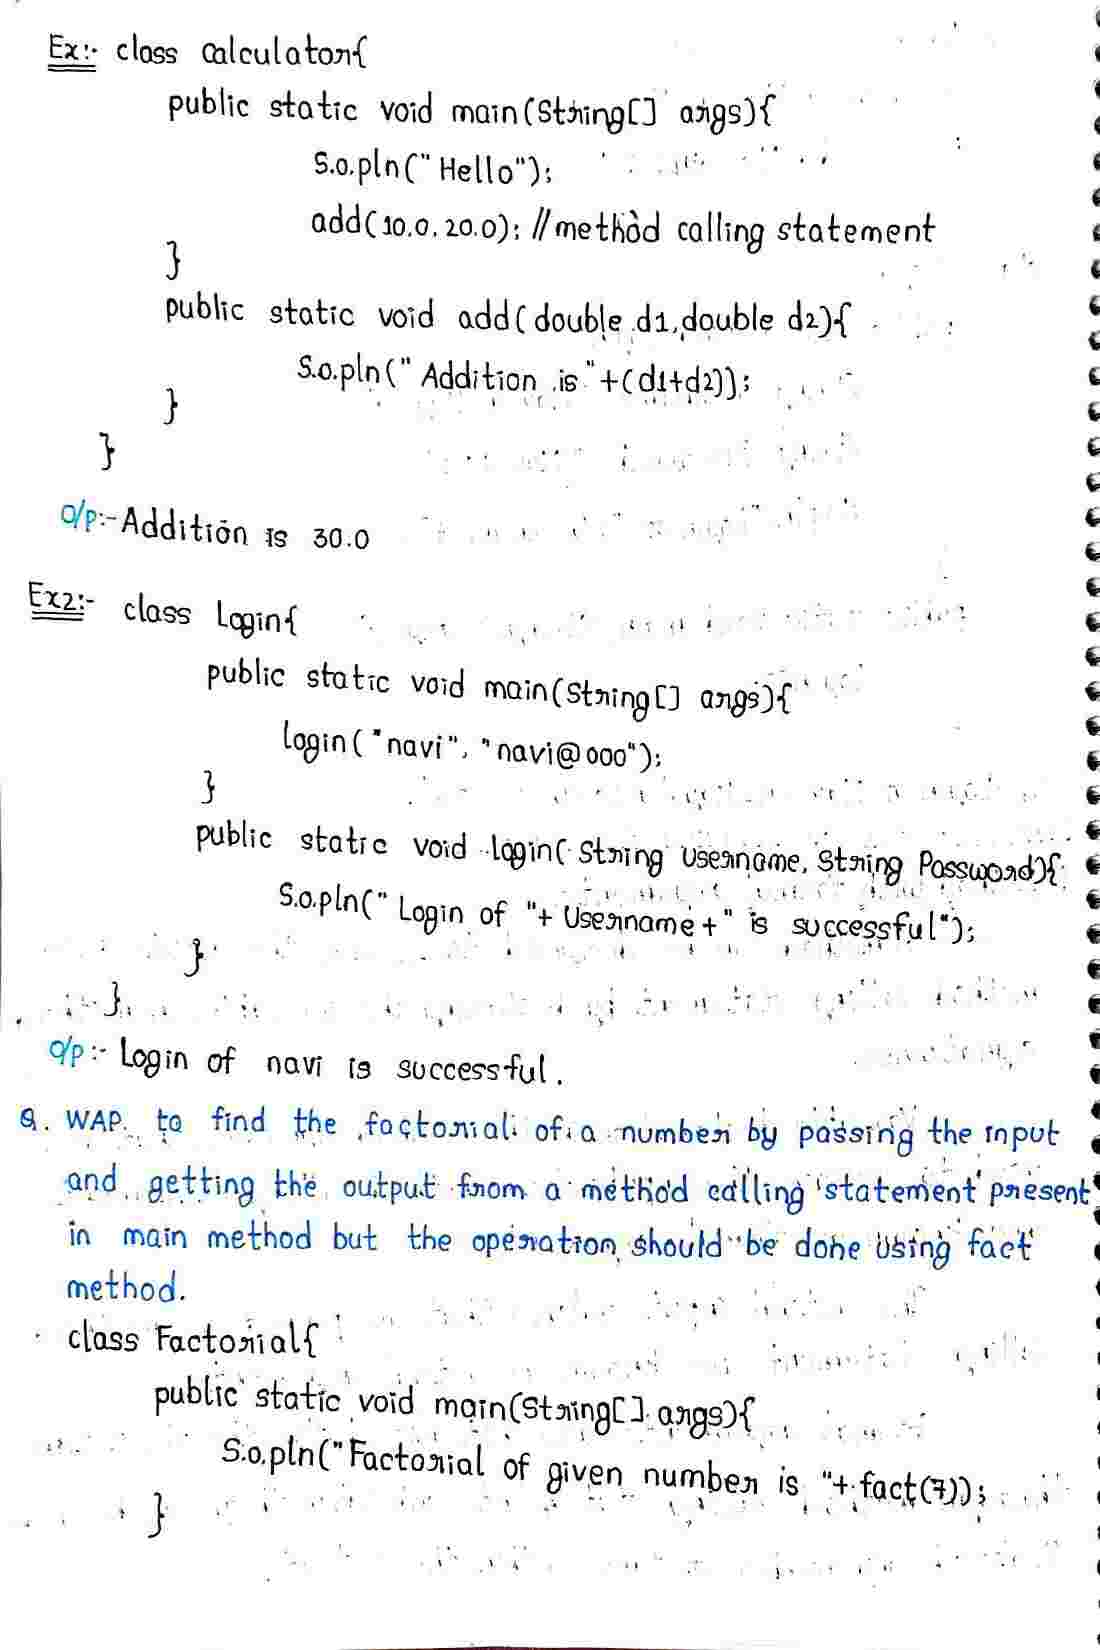 Ex:- class calculator{
public static void main(String[] args){
S.o.pln("Hello");
add(10.0, 20.0); //method calling statement
}
public static void add(double d1, double d2){
S.o.pln(" Addition is "+(d1+d2));
}
}
O/p:- Addition is 30.0
Ex2:- class Login{
public static void main(String[] args){
login("navi", "navi@000");
}
public static void login( String Username, String Password){
S.o.pln(" Login of "+ Username +" is successful");
}
}
O/p:- Login of navi is successful.
Q. WAP to find the factorial of a number by passing the input
and getting the output from a method calling statement present
in main method but the operation should be done using fact
method.
class Factorial{
public static void main(String[] args){
S.o.pln("Factorial of given number is "+ fact(7));
}